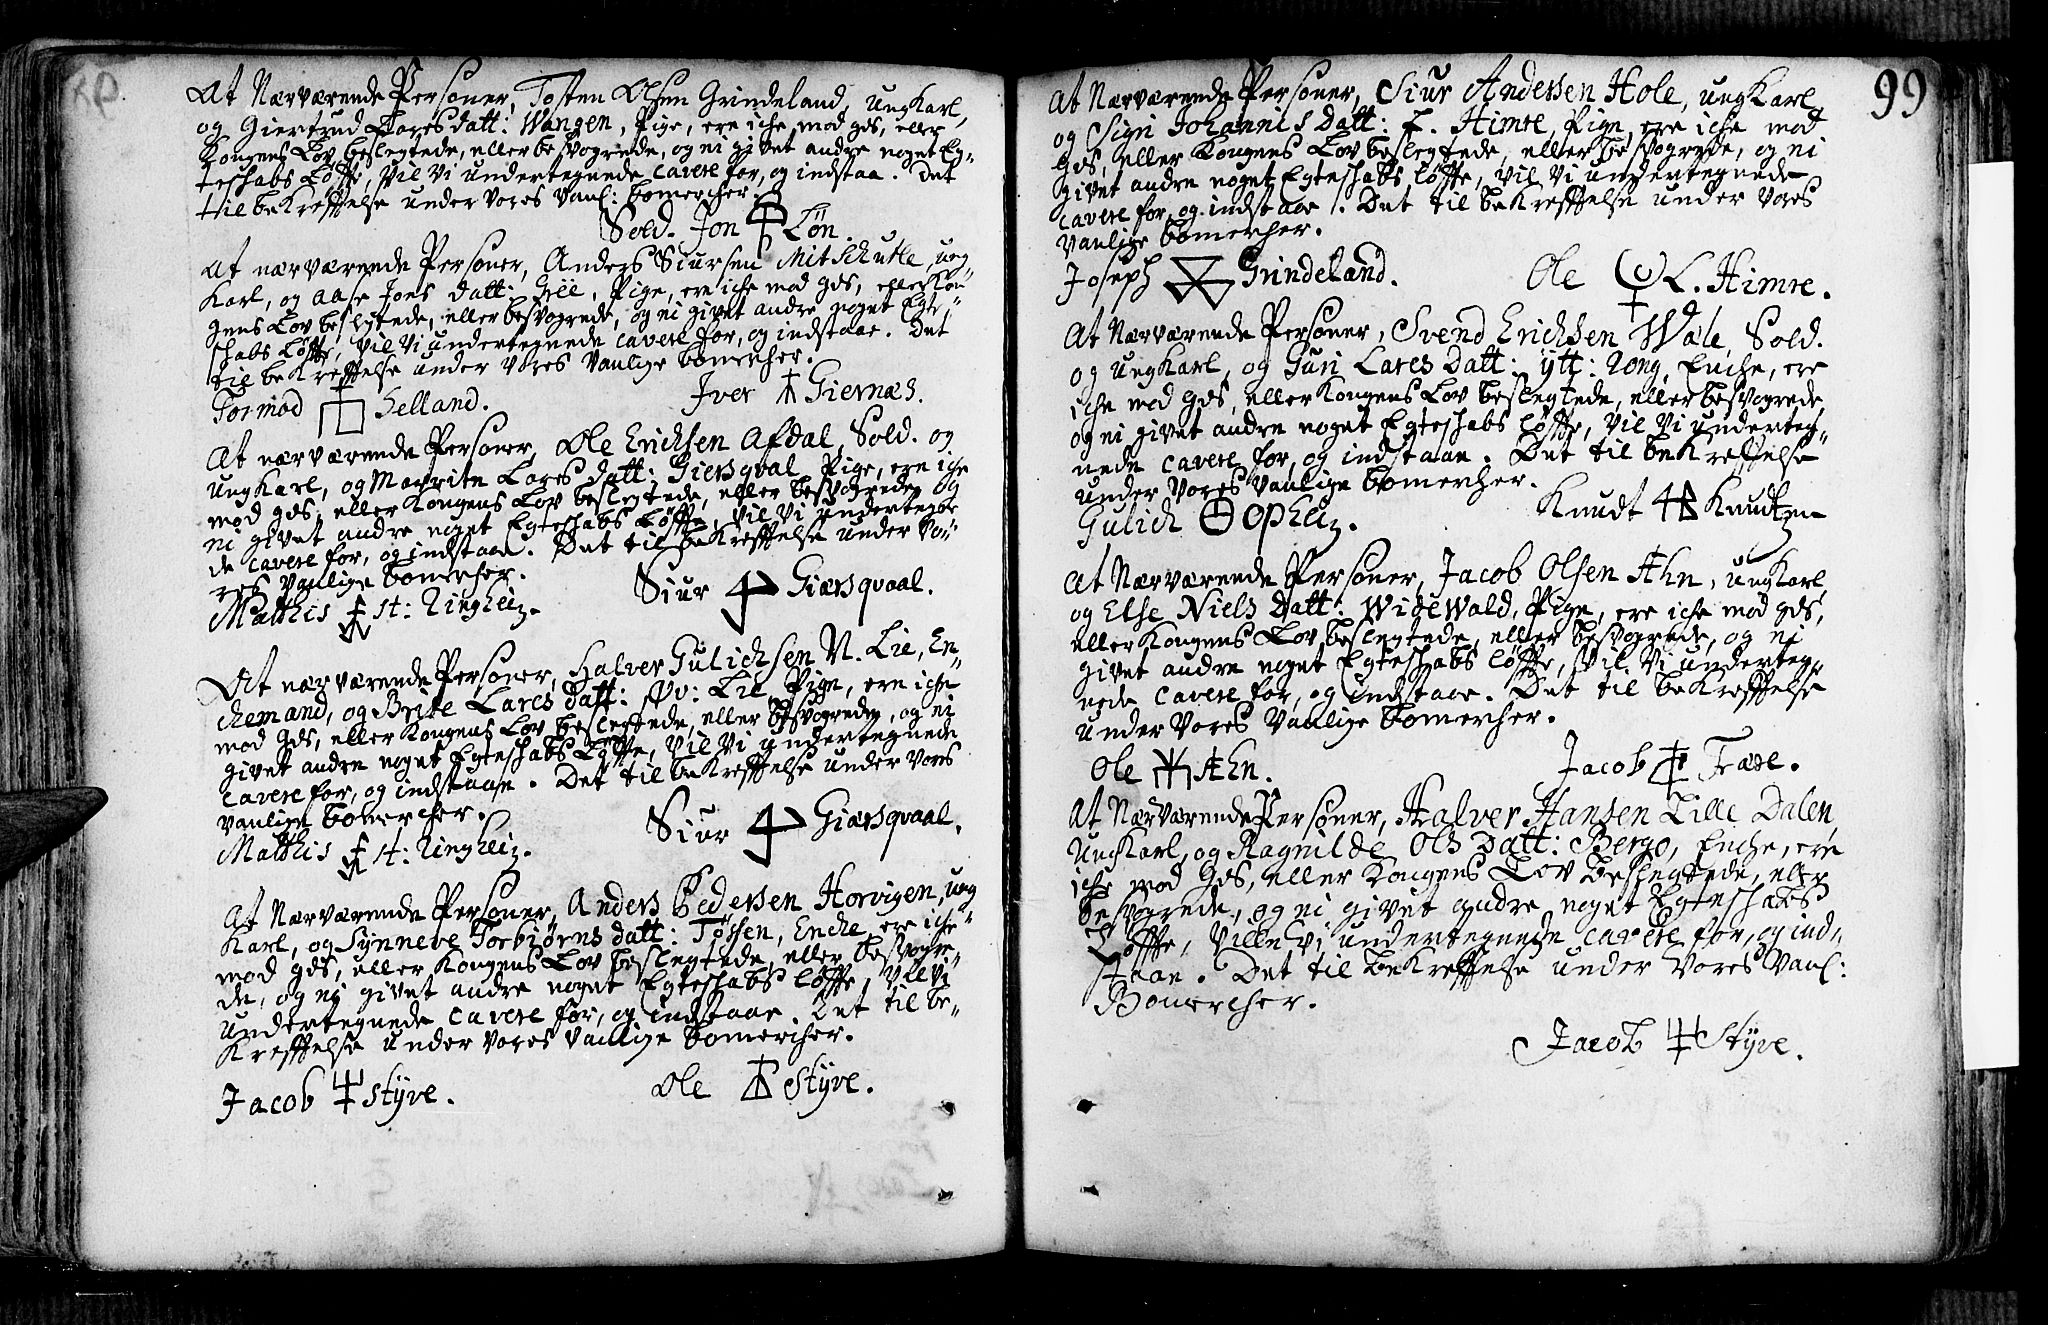 At Nærværende Persøner, Tosten Olsen Grindeland, ungKarl,
og Giertrud Laresdatt: Wangen, Pige, ere iche mod gds, eller
Kongens Lov beslegtede, eller besvogrede, og ei givet andre noget Eg-
teschabs Løffte, vil vi undertegnede cavere for, og indstaa. Det
til bekreffelse under vores vanl: bomercher.
Sold. Jon Løn.
At nærværende Persøner, Anders Siursen Mitschutle, ung-
Karl, og Aase Jons datt: Pige, ere iche mod gds, eller Kon-
gens Lov beslegtede, eller besvogrede, og ei givet andre noget Egte-
schabs Løffte, vil vi undertegnede cavere for, og indstaae. Det
til bekreffelse under vores vanlige bomercher.
Tormod Helland. Iver Giernæs.
At nærværende Persøner, Ole Erichsen Afdal, Sold. og
ungKarl, og Marrite Lares datt: Giersqval Pige, ere iche
mod gds, eller Kongens Lov beslegtede, eller besvogrede, og
ei givet andre noget Egteschabs Løffte, vil vi undertegne-
de cavere for, og indstaae. Det til bekreffelse under vo-
res vanlige bomercher.
Matthis st: Ringheiz. Siur Giærsqvaal.
At nærværende Persøner, Halver Gulichsen N. Lie, En-
chemand, og Brite Lares datt: Lie Pige, ere iche
mod gds, eller Kongens Lov beslegtede, eller besvogrede, og ei
givet andre noget Egteschabs Løffte, vil vi undertegnede
cavere for, og indstaae. Det til bekreffelse under vores
vanlige bomercher.
Matthis st: Ringheiz. Siur Giærsqvaal.
At Nærværende Persøner, Anders Pedersen Horvigen, ung
Karl, og Synneve Torbiørns datt: Tøssen, Enche, ere iche
mod gds, eller Kongens Lov beslegtede, eller besvogre-
de, og ej givet andre noget Egteschabs løffte, vil vi
undertegnede cavere for, og indstaae. Det til be-
Kreffelse under vores vanlige bomercher.
Jacob Styve. Ole Styve.
99
At Nærværende Persøner, Siur Andersen Hole, ungKarl,
og Sigri Johannis Datt: L. Himre, Pige, ere iche mod
gds, eller Kongens Lov beslegtede, eller besvogrede, og ei
givet andre noget Egteschabs løffte, vil vi undertegnede
cavere for, og indstaae. Det til bekreffelse under vores
vanlige bomercher.
Joseph Grindeland. Ole L. Himre.
At Nærværende Persøner, Svend Erichsen Wale, Sold.
og ungKarl, og Guri Lares Datt: ytt: Rong, Enche, ere
iche mod gds, eller Kongens Lov beslegtede, eller besvogrede,
og ei givet andre noget Egteschabs løffte, vil vi underteg-
nede cavere for, og indstaae. Det til bekreffelse
under vores vanlige bomercher.
Gulich Opheiz. Knudt Knudtzen
At Nærværende Persøner, Jacob Olsen Æhn, ungKarl,
og Else Niels Datt: Widewald, Pige, ere iche mod gds,
eller Kongens Lov beslegtede, eller besvogrede, og ei
givet andre noget Egteschabs løffte, vil vi underteg-
nede cavere for, og indstaae. Det til bekreffelse
under vores vanlige bomercher.
Ole Æhn. Jacob Træe.
At Nærværende Persøner, Halver Hansen Lille Dalen,
ungKarl, og Ragnilde Ols Datt: Bergo, Enche, ere
iche mod Gds, eller Kongens Lov beslegtede, eller
besvogrede, og ei givet andre noget Egteschabs
Løffte, ville vi undertegnede cavere for, og ind-
staae. Det til bekreffelse under vores vanl:
Bomercher.
Jacob Styve.